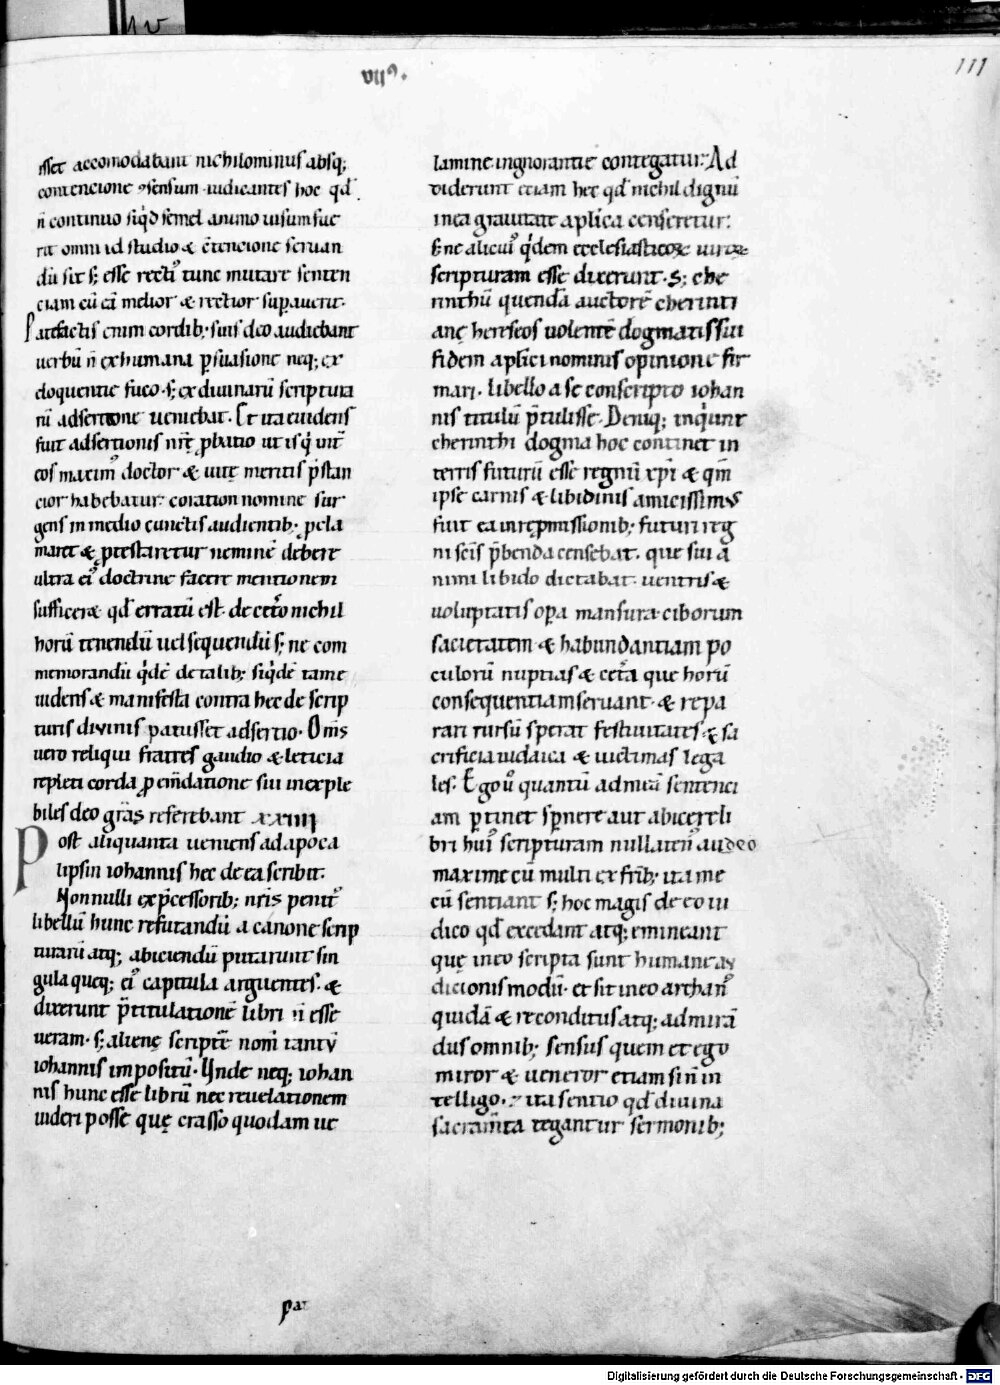 vii⁹.
111
esset accomodabant nichilominus absq;
contencione ⁊ sensum iudicantes hoc qđ
n̄ continuo siq̇d semel animo uisum fue
rit omni id studio & c̄tencione seruan
dū sit s; esse rectiꝰ tunc mutare senten
ciam cū eā melior & rectior supauerit.
Patefactis enim cordib; suis deo audiebant
uerbū n̄ ex humana psuasione neq; ex
eloquentie fuco. s; ex diuinarū scriptura
rū adsertione ueniebat. Et ita euidens
fuit adsertionis nr̄ę pbatio ut isq̇ int̄
eos maximꝰ doctor & uitę meritis p̄stan
cior habebatur coration nomine sur
gens in medio cunctis audientib; pcla
maret & ꝓtestaretur neminē debere
ultra eiꝰ doctrine facere mentionem
sufficere qđ erratū est. de cet̄o nichil
horū tenendū uel sequendū s; ne com
memorandū q̇dē de talib; siq̇dē tam e
uidens & manifesta contra hec de scrip
turis divinis patuisset adsertio. Om̄s
uero reliqui fratres gaudio & leticia
repleti corda ꝓ em̄datione sui inexple
biles deo grās referebant xxiiii
Post aliquanta ueniens ad apoca
lipsin iohannis hec de ea scribit.
Nonnulli ex p̄cessorib; nr̄is penitꝰ
libellū hunc refutandū a canone scrip
turarū atq; abiciendū putarunt sin
gula queq; eiꝰ capitula arguentes. &
dixerunt p̄titulationē libri n̄ esse
ueram. s; alienę scripturę nom̄ tantū
iohannis impositū. Unde neq; iohan
nis hunc esse librū nec reuelationem
uideri posse quę crasso quodam ue
lamine ingnorantie contegatur. Ad
diderunt etiam hec qđ nichil dignū
in ea grauitate aplica censeretur.
S; ne alicuiꝰ q̇dem ecclesiasticoꝝ uiroꝝ
scripturam esse dixerunt. S; che
rinthū quendā auctorē cherinti
anę hereseos uolentē dogmatis sui
fidem aplici nominis opinione fir
mari. libello a se conscripto iohan
nis titulū p̄tulisse. Deniq; inq̇unt
cherinthi dogma hoc continet in
terris futurū esse regnū xp̄i & qm̄
ipse carnis & libidinis amicissimus
fuit ea in reꝓmissionib; futuri reg
ni sc̄is p̄benda censebat. que sui a
nimi libido dictabat uentris &
uoluptatis opa mansura ciborum
sacietatem & habundantiam po
culorū nuptias & cet̄a que horū
consequentiam seruant & repa
rari rursū sperat festiuitates. & sa
crificia iudaica & uictimas lega
les. Ego uͦ quantū ad meā sentenci
am ptinet sp̄nere aut abicere li
bri huiꝰ scripturam nullatenꝰ audeo
maxime cū multi ex frīb; ita me
cū sentiant s; hoc magis de eo iu
dico qđ excedant atq; emineant
quę in eo scripta sunt humane au
dicionis modū. et sit in eo archanꝰ
quidā & reconditus atq; admirā
dus omnib; sensus quem et ego
miror & ueneror etiam si n̄ in
telligo. ⁊ ita sentio qđ diuina
sacram̄ta tegantur sermonib;
par
Digitalisierung gefördert durch die Deutsche Forschungsgemeinschaft - DFG